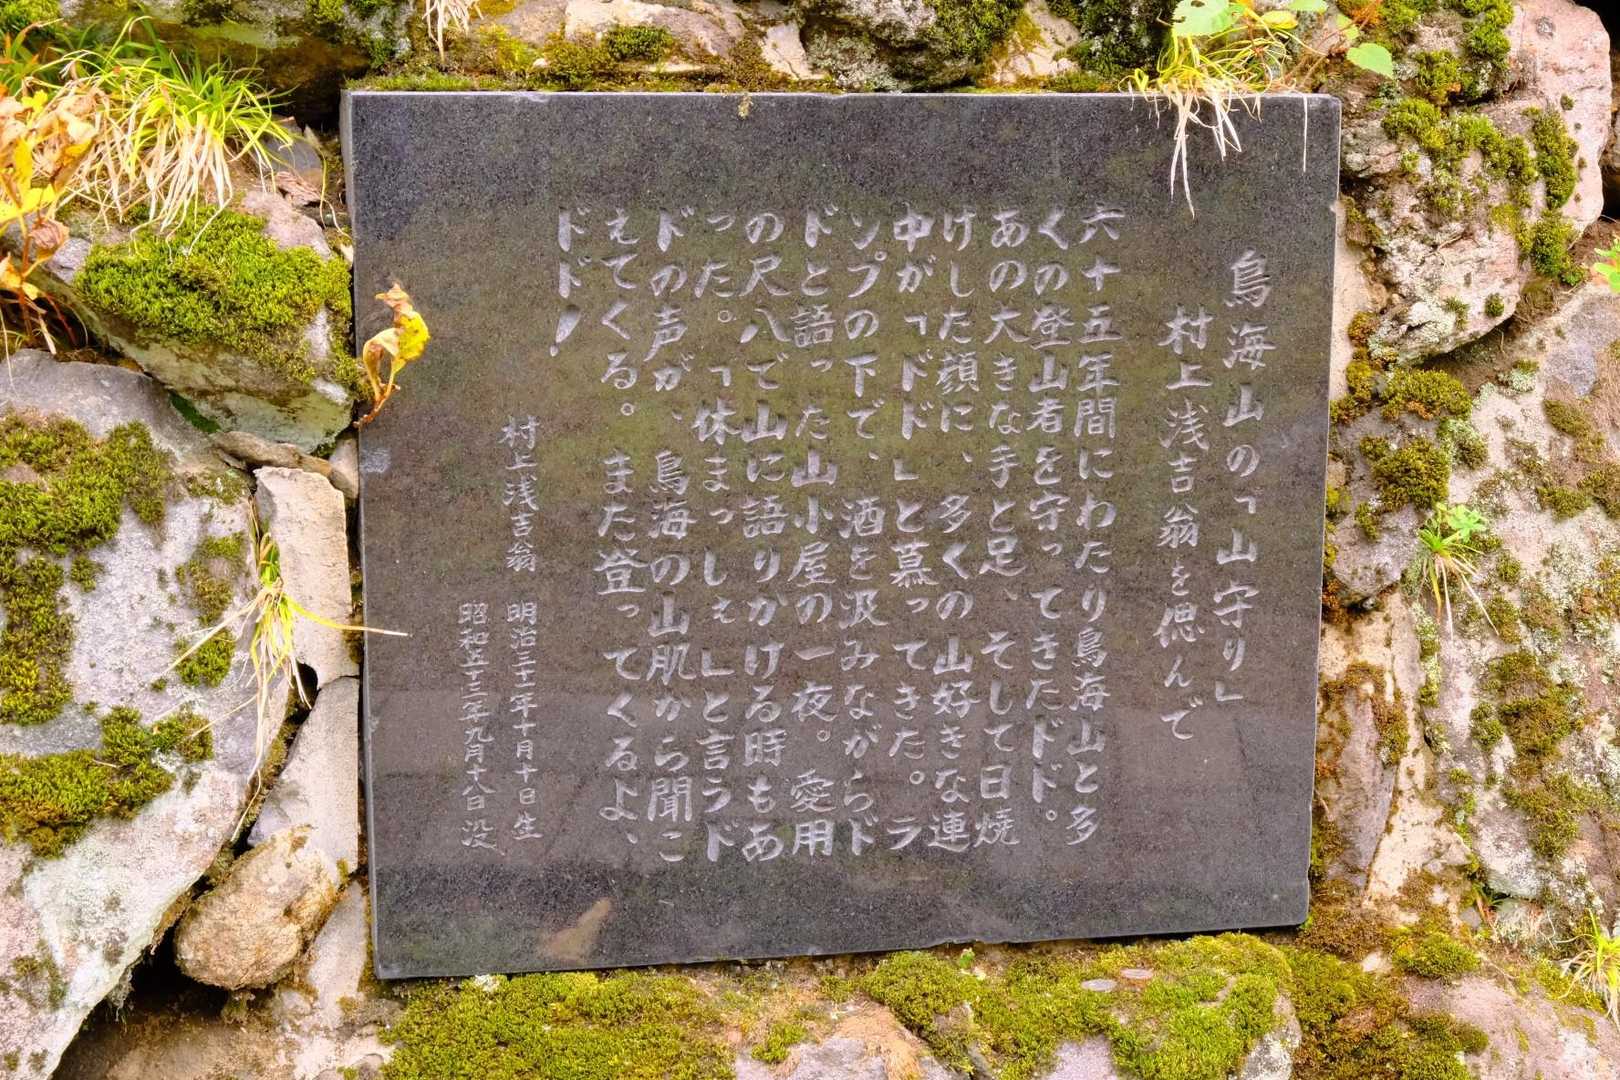 鳥海山の「山守り」
村上浅吉翁を偲んで
六十五年間にわたり鳥海山と多
くの登山者を守ってきたドド。
あの大きな手と足、そして日焼
けした顔に、多くの山好きな連
中が「ドド」と慕ってきた。ラ
ンプの下で、酒を汲みながらド
ドと語った山小屋の一夜。愛用
の尺八で山に語りかける時もあ
った。「休まっしぇ」と言うド
ドの声が、鳥海の山肌から聞こ
えてくる。また登ってくるよ、
ドド!
村上浅吉翁 明治三十一年十月十日生
昭和五十三年九月十八日没